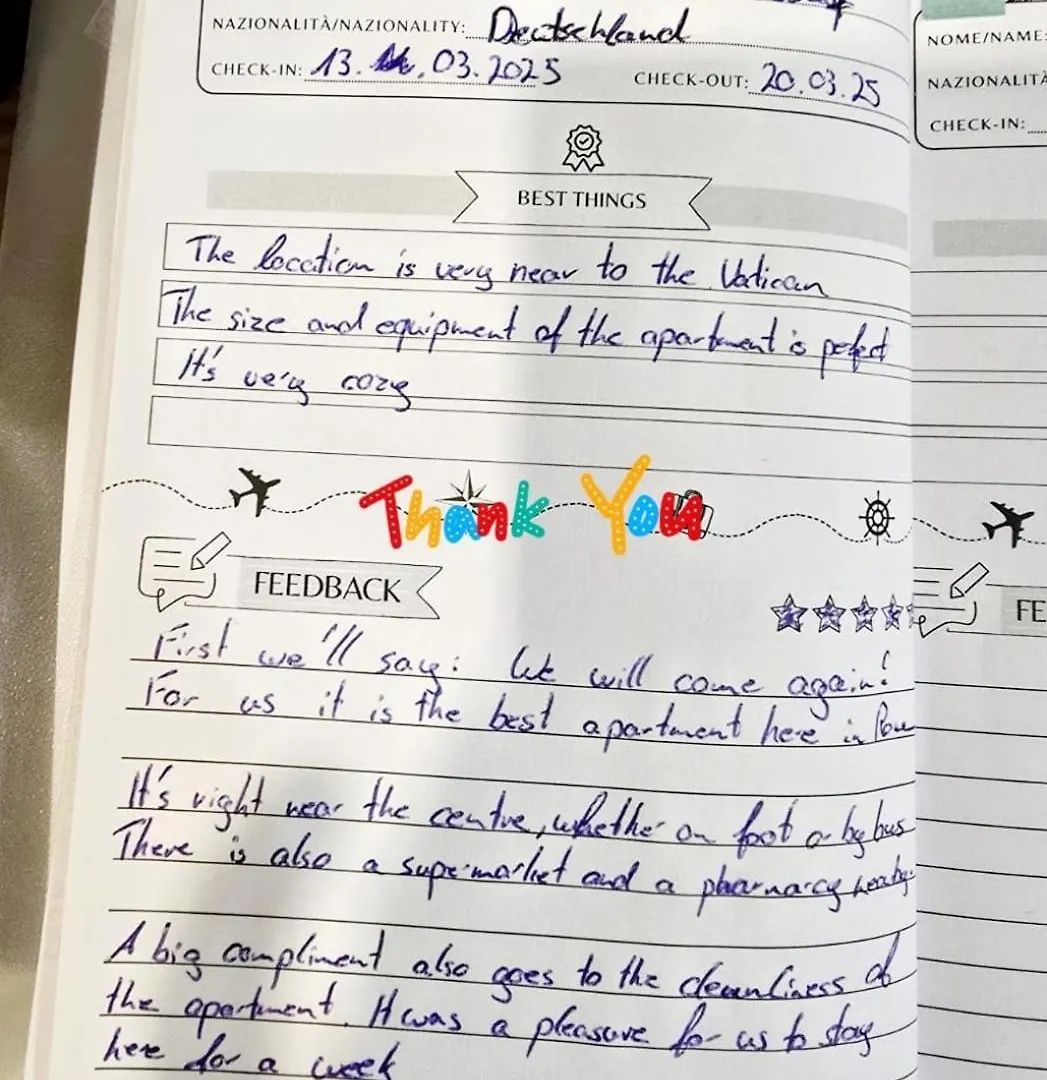 NAZIONALITÀ/NAZIONALITY: Deutschland
CHECK-IN: 13. 03.2025 CHECK-OUT: 20.03.25
BEST THINGS
The location is very near to the Vatican
The size and equipment of the apartment is pefect
It's very cozy
Thank You
FEEDBACK
First we'll say: We will come again!
For us it is the best apartment here in Rome
It's right near the centre, whether on foot or by bus
There is also a supermarket and a pharmacy nearby.
A big compliment also goes to the cleanliness of
the apartment. It was a pleasure for us to stay
here for a week
NOME/NAME:
NAZIONALITÀ
CHECK-IN:
FE